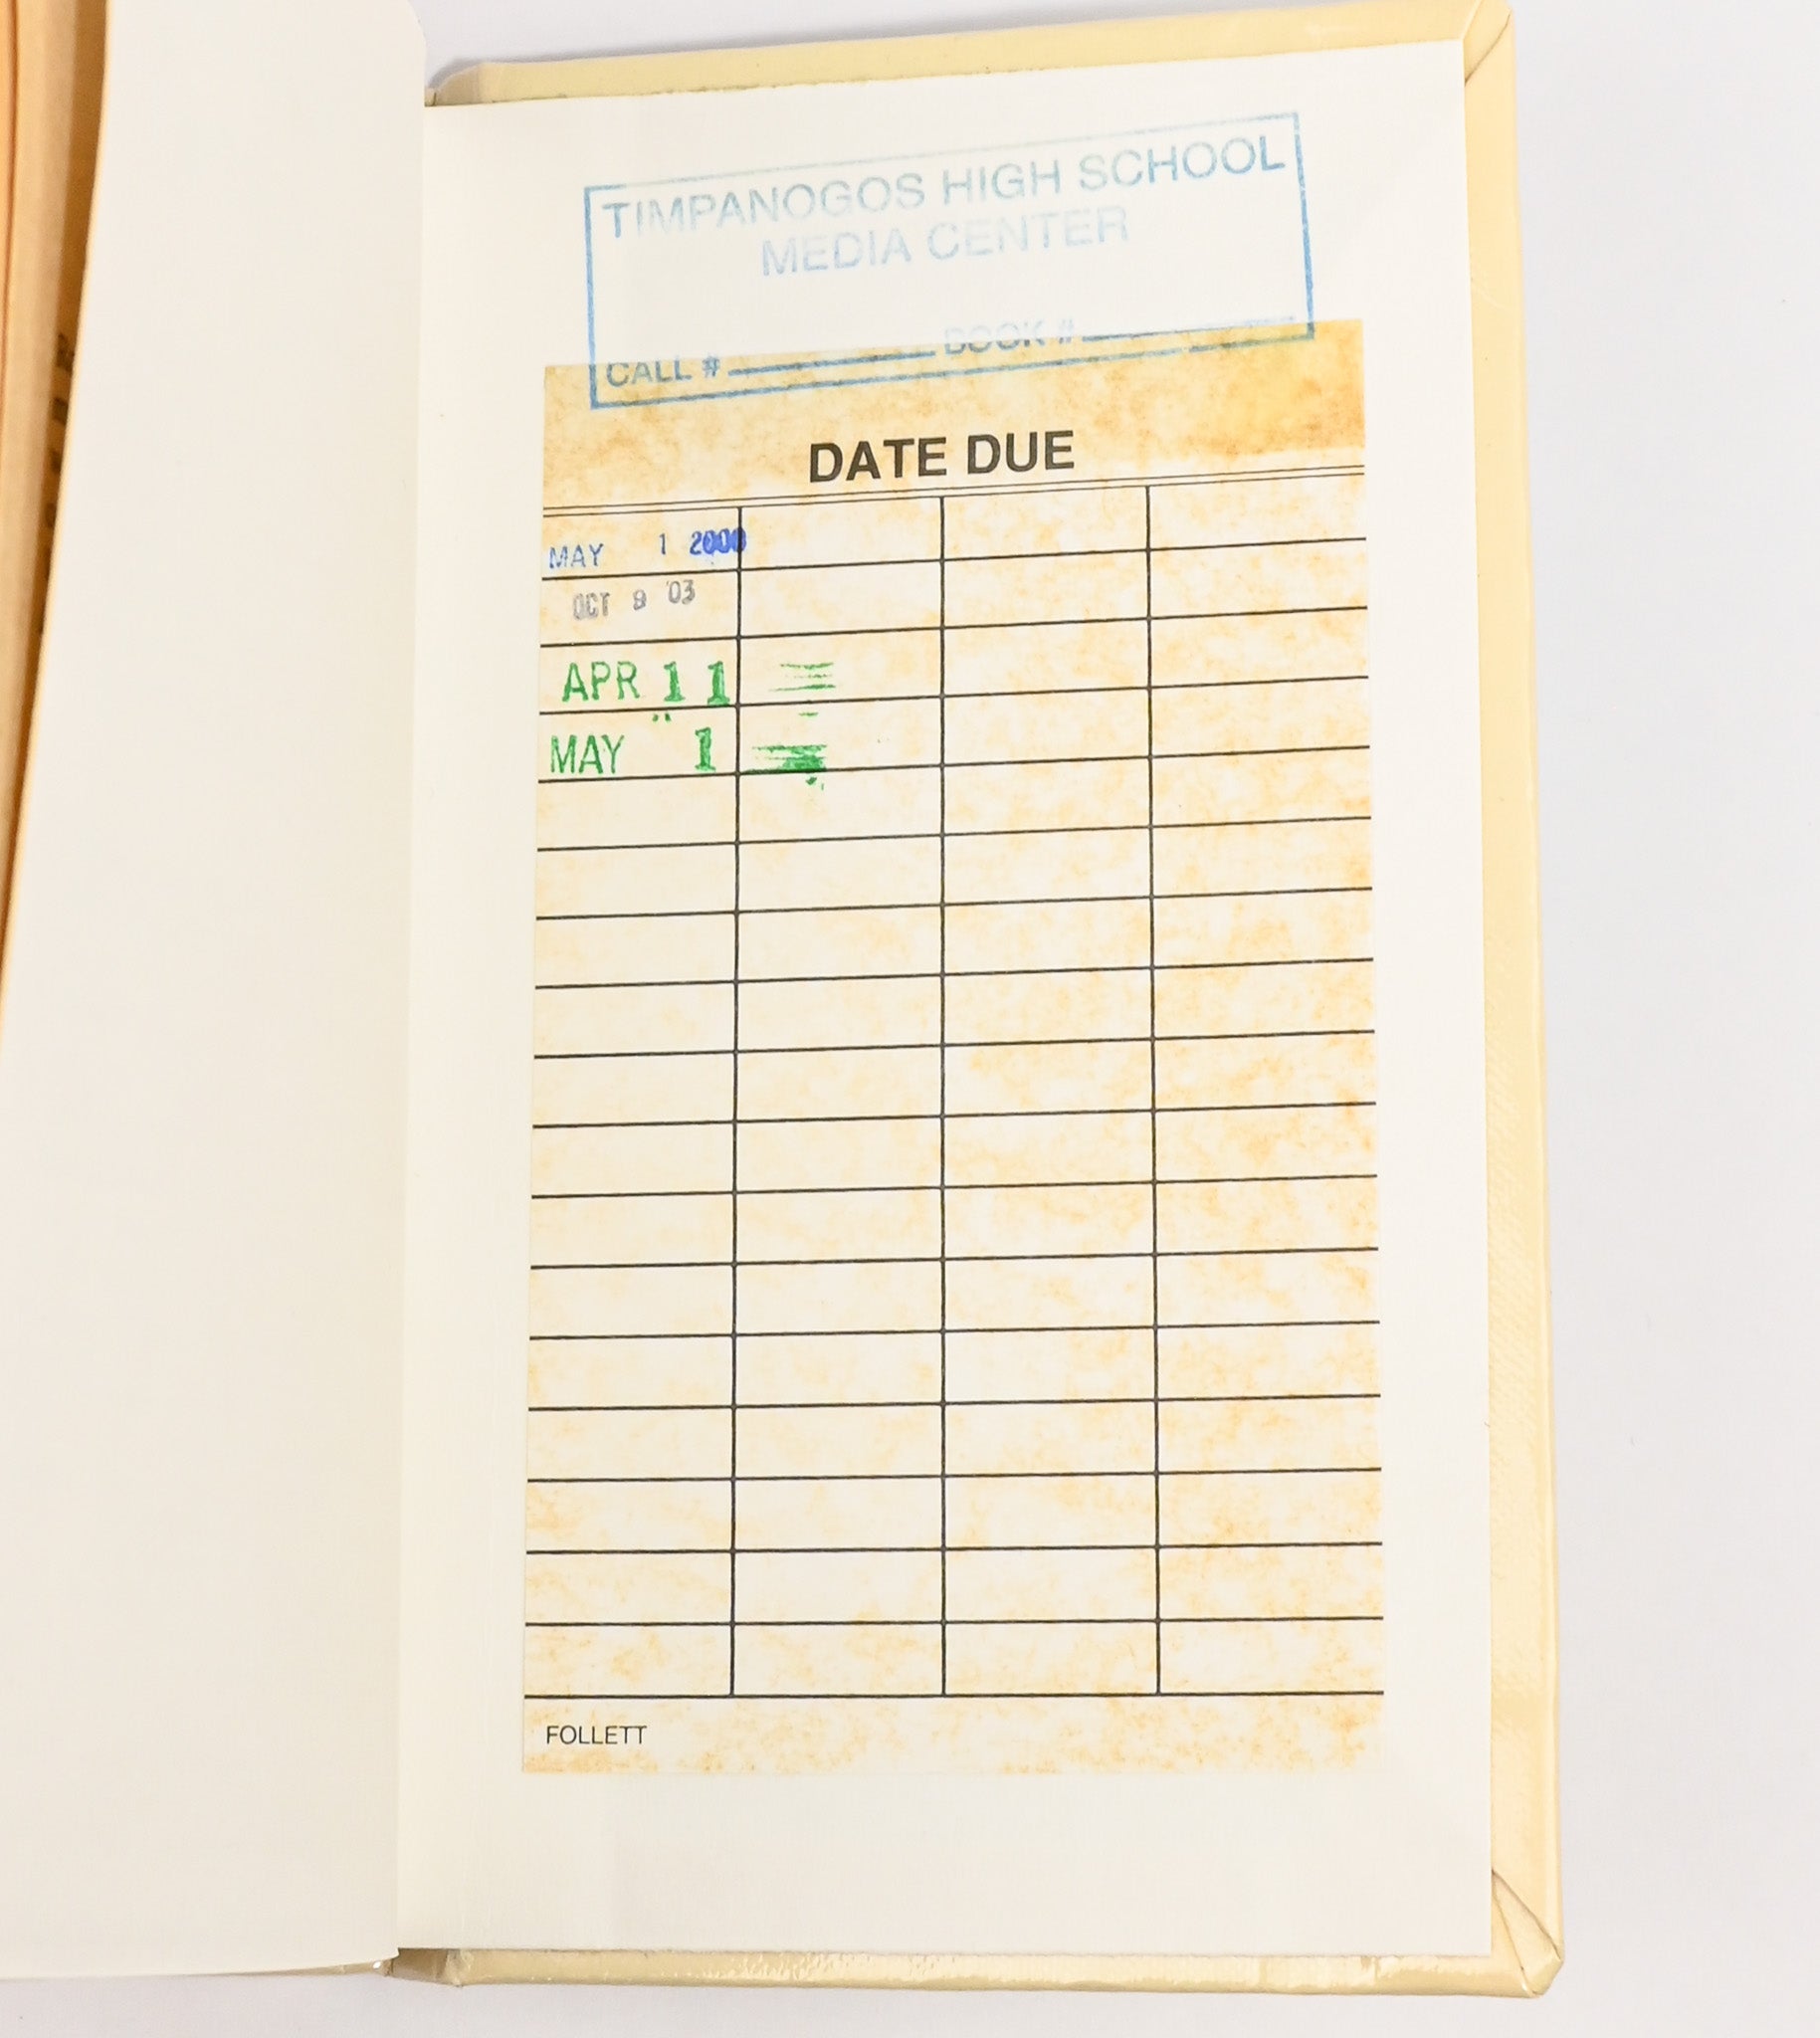 TIMPANOGOS HIGH SCHOOL
MEDIA CENTER
CALL # BOOK #
DATE DUE
MAY 1 2000
OCT 9 '03
APR 11
MAY 1
FOLLETT